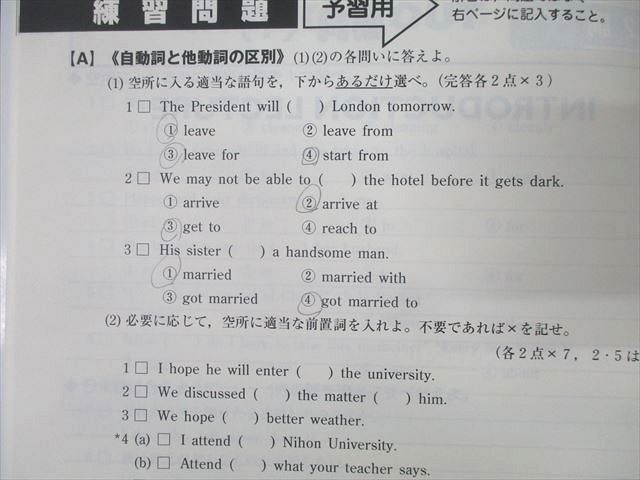 練習問題
予習用
右ページに記入すること。
【A】《自動詞と他動詞の区別》(1)(2)の各問いに答えよ。
(1) 空所に入る適当な語句を，下からあるだけ選べ。(完答各2点×3)
1 □ The President will (　) London tomorrow.
① leave ② leave from
③ leave for ④ start from
2 □ We may not be able to (　) the hotel before it gets dark.
① arrive ② arrive at
③ get to ④ reach to
3 □ His sister (　) a handsome man.
① married ② married with
③ got married ④ got married to
(2) 必要に応じて，空所に適当な前置詞を入れよ。不要であれば×を記せ。
(各2点×7，2・5は
1 □ I hope he will enter (　) the university.
2 □ We discussed (　) the matter (　) him.
3 □ We hope (　) better weather.
*4 (a) □ I attend (　) Nihon University.
(b) □ Attend (　) what your teacher says.